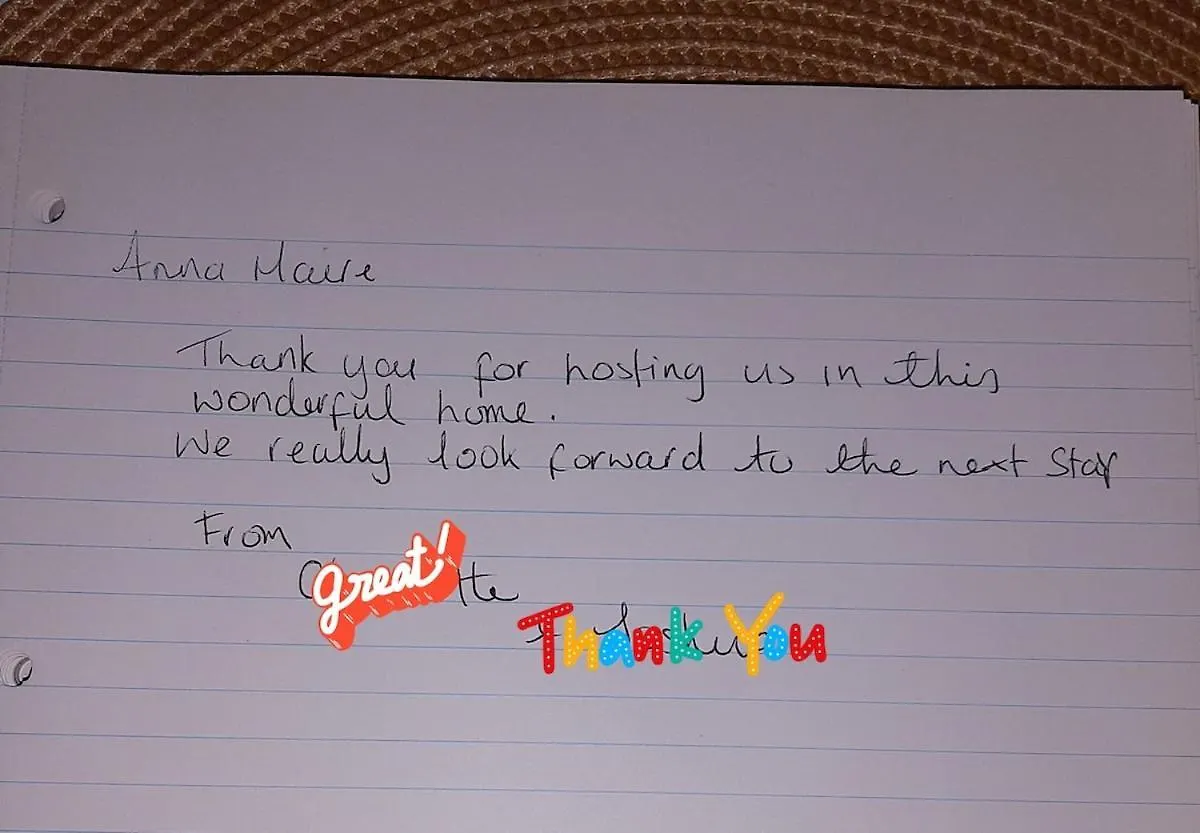 Anna Maire
Thank you for hosting us in this
wonderful home.
We really look forward to the next stay
From
great!
Thank You